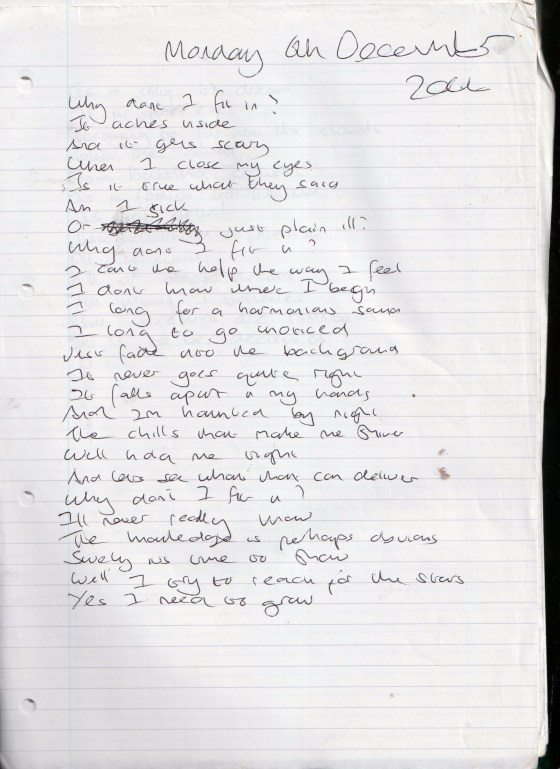 Monday 6th December
Why dont I fit in?
It aches inside
And it gets scary
When I close my eyes
Is it true what they said
Am I sick
Or just plain ill?
Why dont I fit in?
I cant the help the way I feel
I dont know where I begin
I long for a harmonious sound
I long to go unnoticed
Just fade into the background
It never goes quite right
It falls apart in my hands
And Im haunted by night
The chills that make me shiver
Well hold me tight
And lets see what that can deliver
Why don't I fit in?
I'll never really know
The knowledge is perhaps obvious
Surely its time to show
Well I try to reach for the stars
Yes I need to grow